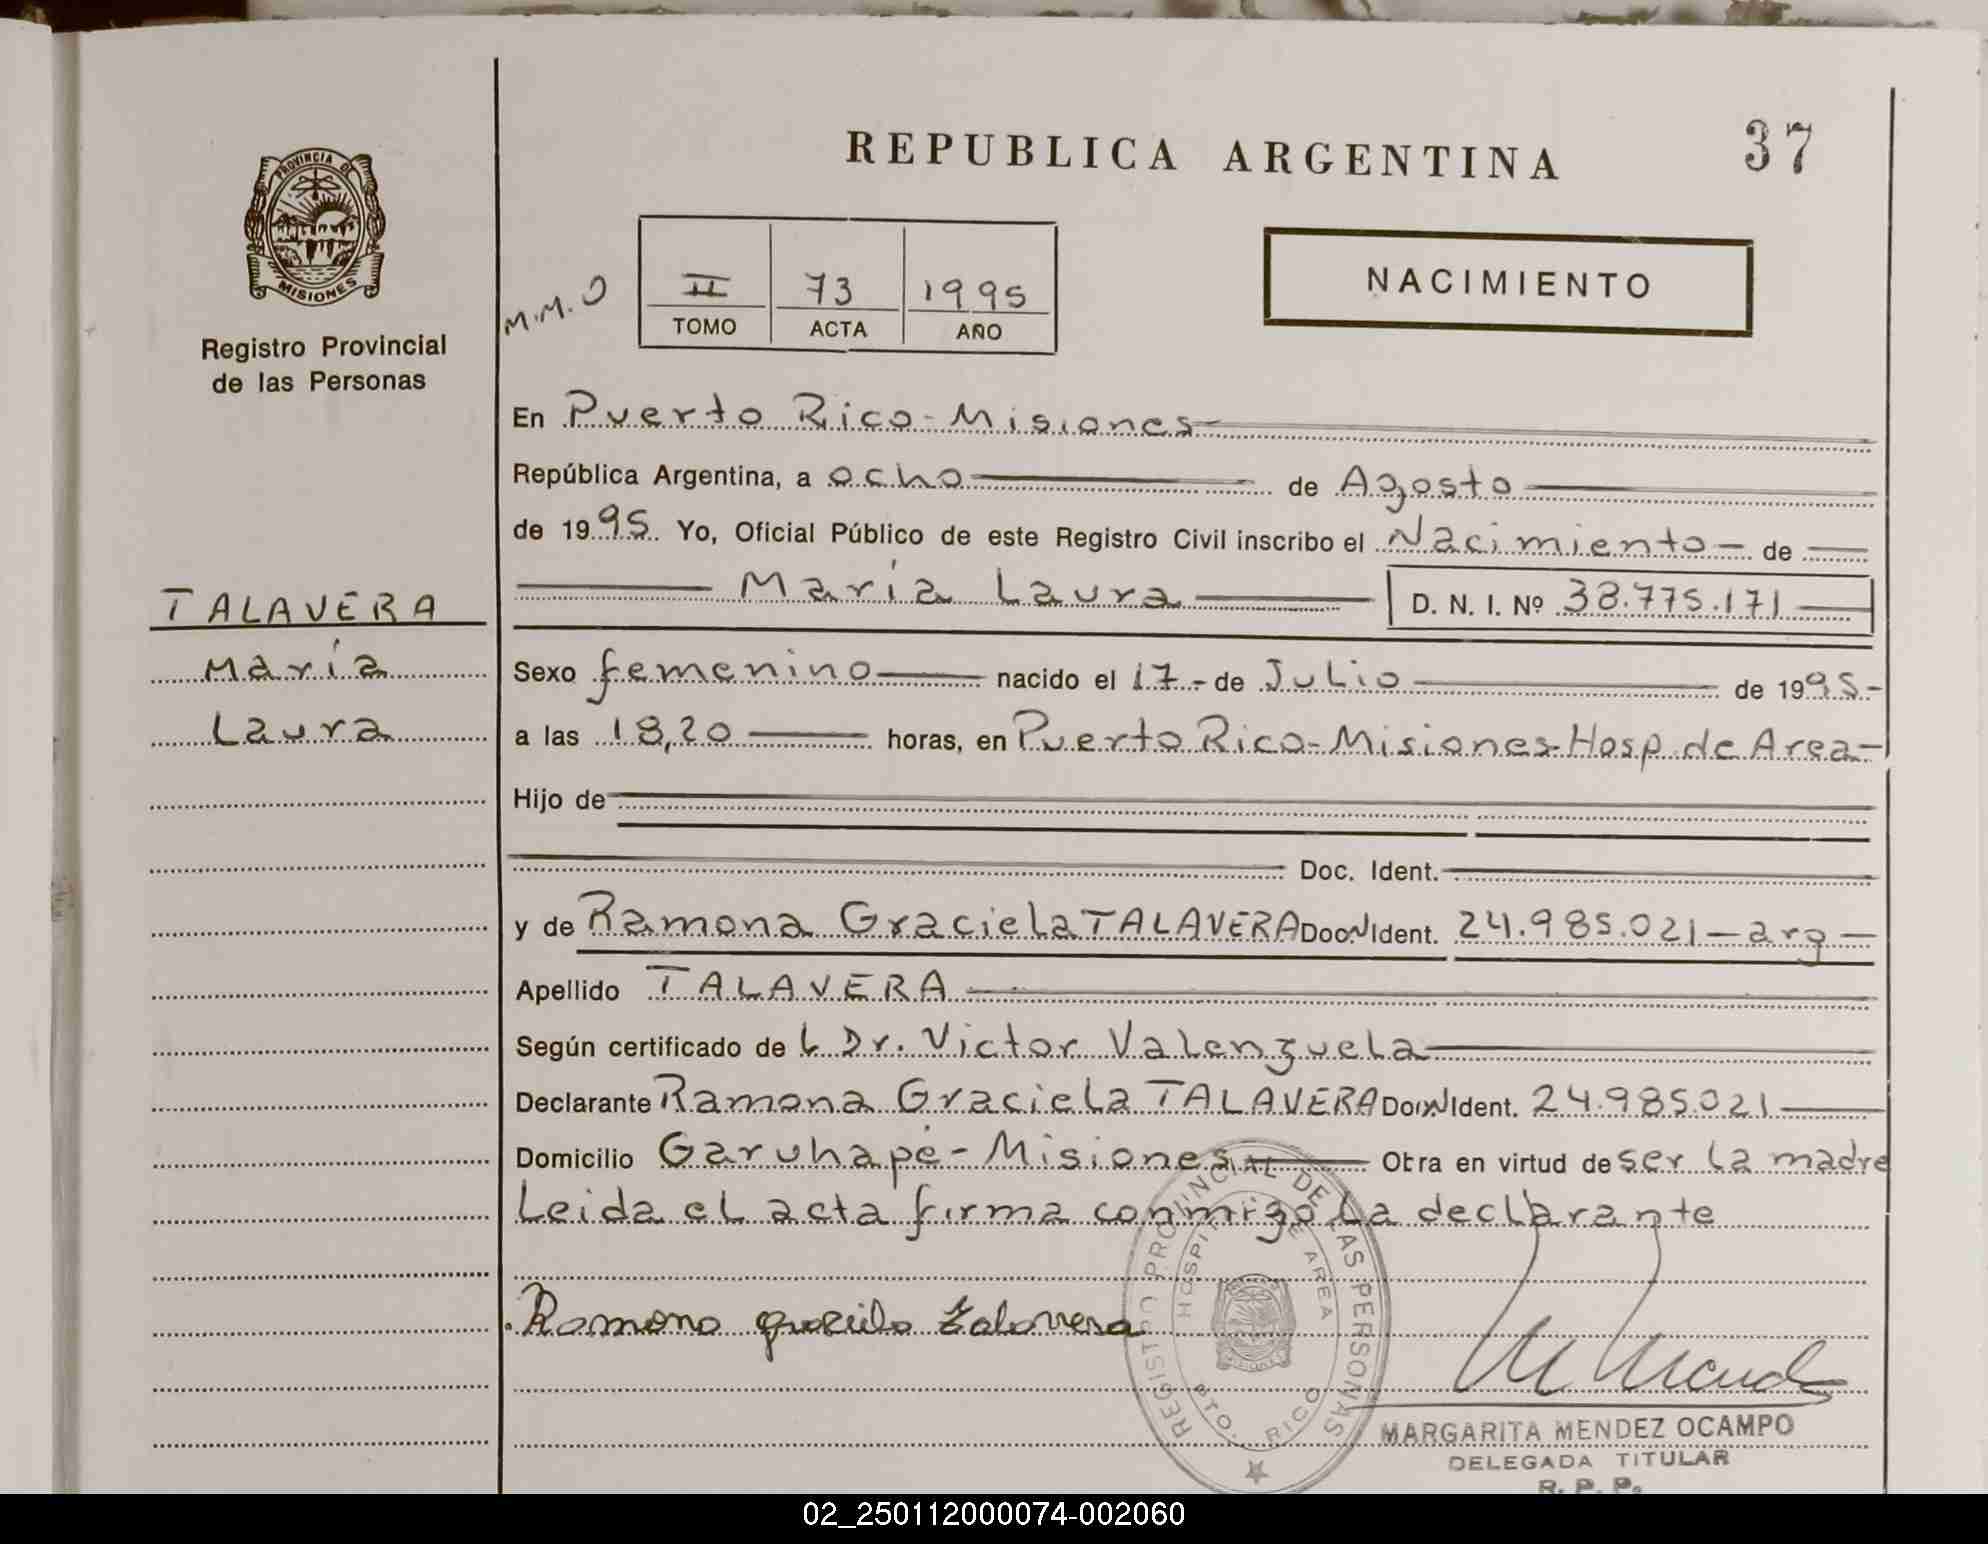 REPUBLICA ARGENTINA
37
PROVINCIA DE
MISIONES
Registro Provincial
de las Personas
M.M.O
II 73 1995
TOMO ACTA AÑO
NACIMIENTO
En Puerto Rico - Misiones
República Argentina, a ocho de Agosto
de 1995. Yo, Oficial Público de este Registro Civil inscribo el Nacimiento de
María Laura D. N. I. Nº 38.775.171
TALAVERA
María
Laura
Sexo femenino nacido el 17 - de Julio de 1995 -
a las 18,20 horas, en Puerto Rico - Misiones - Hosp. de Area -
Hijo de
Doc. Ident.
y de Ramona Graciela TALAVERA Doc.N Ident. 24.985.021 - arg -
Apellido TALAVERA
Según certificado de L Dr. Victor Valenzuela
Declarante Ramona Graciela TALAVERA Doc.N Ident. 24.985.021
Domicilio Garuhapé - Misiones Obra en virtud de ser la madre
Leida el acta firma conmigo la declarante
Ramona Graciela Talavera
REGISTRO PROVINCIAL DE LAS PERSONAS
HOSPITAL DE AREA
PTO. RICO
MARGARITA MENDEZ OCAMPO
DELEGADA TITULAR
R. P. P.
02_250112000074-002060